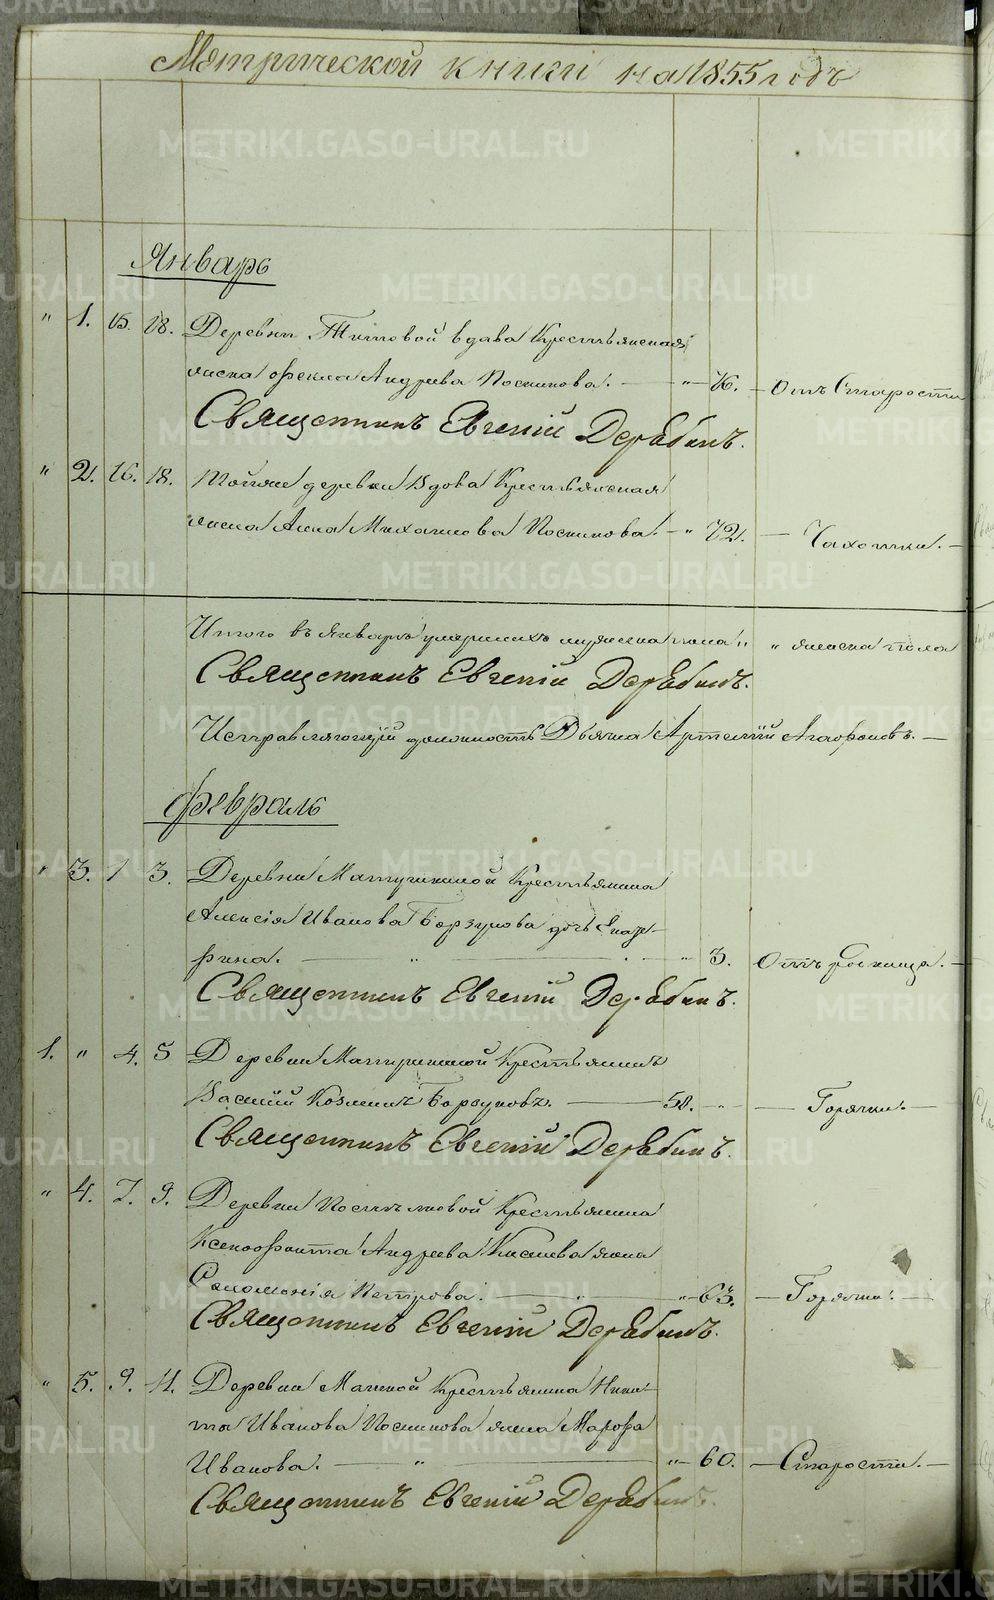 Метрической книги на 1855 годъ
Январь
" 1. 15. 18. Деревни Титовой вдова Крестьянская
жена Фекла Андреева Посникова. — " 76. — Отъ Старости
Священникъ Евгеній Дерябинъ.
" 2. 16. 18. Тойже деревни Вдова Крестьянская
жена Анна Михаилова Посникова. — " 72. — Чахотки. —
Итого въ Январѣ умершихъ мужеска пола " " женска пола
Священникъ Евгеній Дерябинъ.
Исправляющій должность Дьячка Артемій Агафоновъ. —
Февраль
" 3. 1 3. Деревни Крестьянина
Алексія Иванова Борзунова дочь Екате-
рина. — " — " 3. — Отъ Родимца. —
Священникъ Евгеній Дерябинъ.
1. " 4. 5 Деревни Крестьянинъ
Василій Козминъ Борзуновъ. — 58. " — Горячки. —
Священникъ Евгеній Дерябинъ.
" 4. 7. 9. Деревни Крестьянина
Ксенофонта Андреева жена
Соломонія Петрова. — " — " 63. — Горячки. —
Священникъ Евгеній Дерябинъ.
" 5. 9. 11. Деревни Крестьянина Ники-
ты Иванова Посникова жена Марфа
Иванова. — " — " 60. — Старости. —
Священникъ Евгеній Дерябинъ.
METRIKI.GASO-URAL.RU